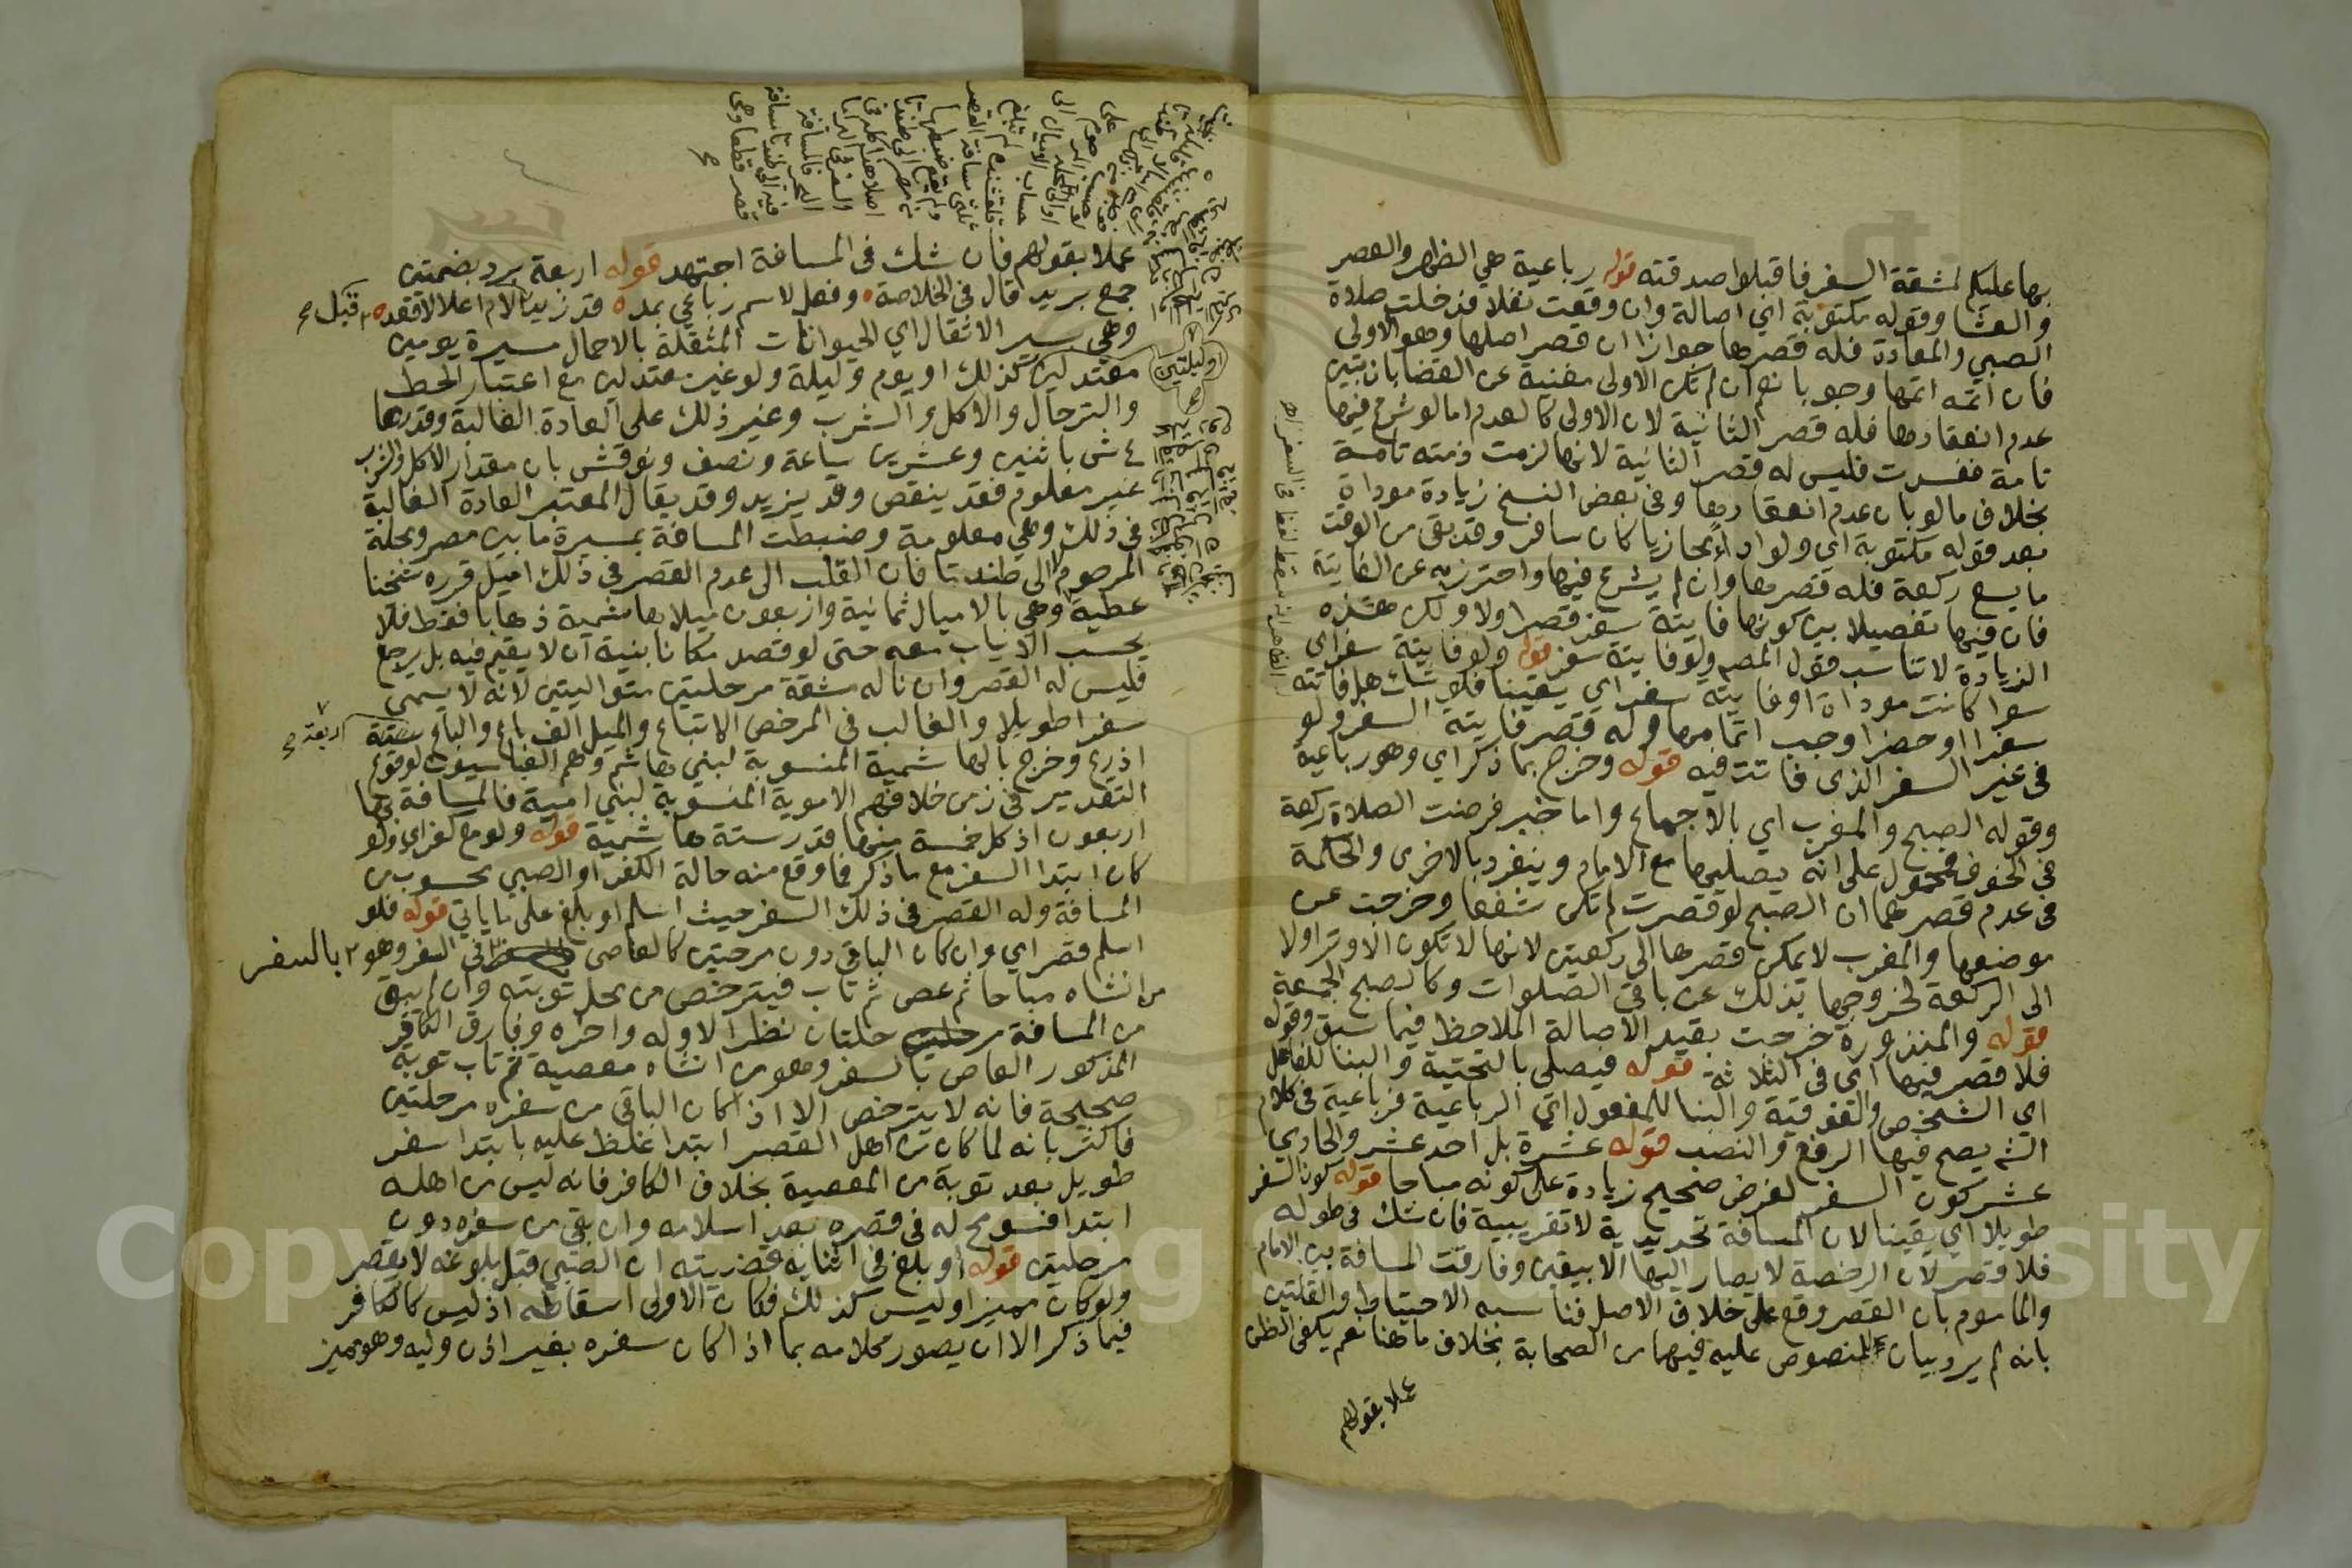 بها عليكم لمشقة السفر فاقبلوا صدقته قوله رباعية هي الظهر والعصر
والعشا وقوله مكتوبة اي اصالة وان وقعت نفلا فدخلت صلاة
الصبي والمعادة فله قصرها جوازا ان قصر اصلها وهو الاولى
فان اتمه اتمها وجوبا نعم ان لم تكن الاولى مغنية عن القضا بان تبين
عدم انعقادها فله قصر الثانية لان الاولى كالعدم اما لو شرع فيها
تامة ففسدت فليس له قصر الثانية لانها لزمت ذمته تامة
بخلاف ما لو بان عدم انعقادها وفي بعض النسخ زيادة موداة
بعد قوله مكتوبة اي ولو اداء مجازيا كان سافر وقد بقي من الوقت
ما يسع ركعة فله قصرها وان لم يشرع فيها واحترز به عن الفايتة
فان فيها تفصيلا بين كونها فايتة سفر قصر اولا ولكن هذه
الزيادة لا تناسب قول المصم ولو فايتة سفر قوله ولو فايتة سفر اي
سوا كانت موداة او فايتة سفر اي يقينا فلو شك هل فاتته
سفرا او حضرا وجب اتمامها وله قصر فايتة السفر ولو
في غير السفر الذي فاتت فيه قوله وخرج بما ذكر اي وهو رباعية
وقوله الصبح والمغرب اي بالاجماع واما خبر فرضت الصلاة ركعة
في الخوف فمحمول على انه يصليها مع الامام وينفرد بالاخرى والحكمة
في عدم قصرهما ان الصبح لو قصرت لم تكن شفعا وخرجت عن
موضعها والمغرب لا يمكن قصرها الى ركعتين لانها لا تكون الا وترا ولا
الى الركعة لخروجها بذلك عن باقي الصلوات وكالصبح الجمعة
قوله والمنذورة خرجت بقيد الاصالة الملاحظ فيما سبق وقوله
فلا قصر فيها اي في الثلاثة قوله فيصلي بالتحتية والبنا للفاعل
اي الشخص والفوقية والبنا للمفعول اي الرباعية فرباعية في كلام
الشم يصح فيها الرفع والنصب قوله عشرة بل احد عشر والحادي
عشر كون السفر لغرض صحيح زيادة على كونه مباحا قوله كون السفر
طويلا اي يقينا لان المسافة تحديدية لا تقريبية فان شك في طوله
فلا قصر لان الرخصة لا يصار اليها الا بيقين وفارقت المسافة بين الامام
والماموم بان القصر وقع على خلاف الاصل فناسبه الاحتياط والقلتين
بانه لم يرد بيان المنصوص عليه فيهما من الصحابة بخلاف ما هنا نعم يكفي الظن
عملا بقولهم
عملا بقولهم فان شك في المسافة اجتهد قوله اربعة برد بضمتين
جمع بريد قال في الخلاصة وفعل لاسم رباعي بمد قد زيد قبل لام اعلالا فقد
وهي سير الاثقال اي الحيوانات المثقلة بالاحمال مسيرة يومين
معتدلين كذلك او يوم وليلة ولو غير معتدلين مع اعتبار الحط
او ليلتين
والترحال والاكل والشرب وغير ذلك على العادة الغالبة وقدرها
ع ش باثنين وعشرين ساعة ونصف ونوقش بان مقدار الاكل والشرب
غير معلوم فقد ينقص وقد يزيد وقد يقال المعتبر العادة الغالبة
في ذلك وهي معلومة وضبطت المسافة بمسيرة ما بين مصر ومحلة
المرحوم لا الى طندتا فان القلب الى عدم القصر في ذلك اميل قرره شيخنا
عطية وهي بالاميال ثمانية واربعون ميلا هاشمية ذهابا فقط فلا
يحسب الاياب معه حتى لو قصد مكانا بنية ان لا يقيم فيه بل يرجع
فليس له القصر وان ناله مشقة مرحلتين متواليتين لانه لا يسمى
سفرا طويلا والغالب في المرخص الاتباع والميل الف باع والباع ستة
اربعة صح
اذرع وخرج بالهاشمية المنسوبة لبني هاشم وهم العباسيون لوقوع
التقدير في زمن خلافتهم الاموية المنسوبة لبني امية فالمسافة بها
اربعون اذ كل خمسة منها قدر ستة هاشمية قوله ولو مع كفر اي ولو
كان ابتدا السفر مع ما ذكر فما وقع منه حالة الكفر او الصبي محسوب من
المسافة وله القصر في ذلك السفر حيث اسلم او بلغ على ما ياتي قوله فلو
اسلم قصر اي وان كان الباقي دون مرحلتين كالعاصي في السفر وهو
بالسفر
من انشاه مباحا ثم عصى ثم تاب فيترخص من محل توبته وان لم يبق
من المسافة مرحلتان نظرا لاوله واخره وفارق الكافر
المذكور العاصي بالسفر وهو من انشاه معصية ثم تاب توبة
صحيحة فانه لا يترخص الا اذا كان الباقي من سفره مرحلتين
فاكثر بانه لما كان من اهل القصر ابتدا غلظ عليه بابتدا سفر
طويل بعد توبة من المعصية بخلاف الكافر فانه ليس من اهله
ابتدا فسومح له في قصره بعد اسلامه وان بقي من سفره دون
مرحلتين قوله او بلغ في اثنايه قضيته ان الصبي قبل بلوغه لا يقصر
ولو كان مميزا وليس كذلك فكان الاولى اسقاطه اذ ليس كالكافر
فيما ذكر الا ان يصور كلامه بما اذا كان سفره بغير اذن وليه وهو مميز